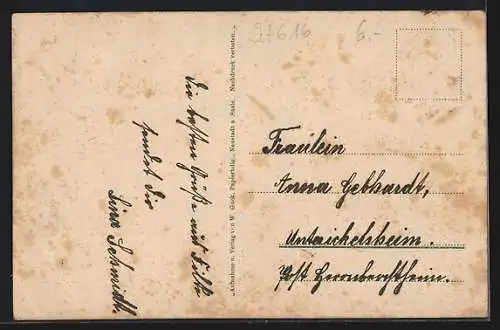 27616
6.-
Die besten Grüße aus
sendet Dir
Lina Schmidt.
Aufnahme u. Verlag von W. Guck, Papierhdlg., Neustadt a. Saale. Nachdruck verboten.
Fräulein
Anna Gebhardt,
Unteichelsheim.
Post Herrnberchtheim.